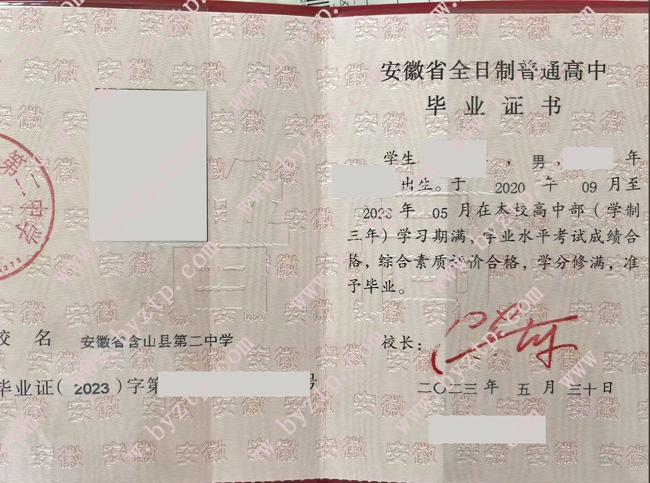 第二中学
校 名 安徽省含山县第二中学
毕业证(2023)字第 号
安徽省全日制普通高中
毕业证书
学生 ，男， 年
出生。于 2020 年 09 月至
2023 年 05 月在本校高中部（学制
三年）学习期满，学业水平考试成绩合
格，综合素质评价合格，学分修满，准
予毕业。
校长：
二〇二三年 五 月 三十日
www.byztp.com